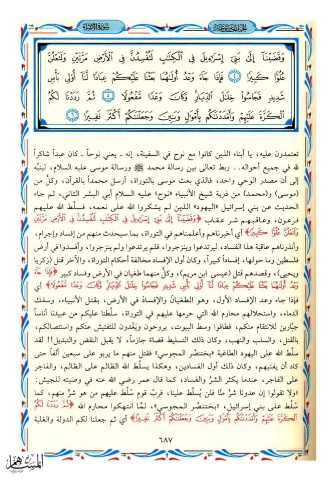 سورة الإسراء
وَقَضَيْنَا إِلَىٰ بَنِي إِسْرَائِيلَ فِي الْكِتَابِ لَتُفْسِدُنَّ فِي الْأَرْضِ مَرَّتَيْنِ وَلَتَعْلُنَّ
عُلُوًّا كَبِيرًا ﴿٤﴾ فَإِذَا جَاءَ وَعْدُ أُولَاهُمَا بَعَثْنَا عَلَيْكُمْ عِبَادًا لَنَا أُولِي بَأْسٍ
شَدِيدٍ فَجَاسُوا خِلَالَ الدِّيَارِ وَكَانَ وَعْدًا مَفْعُولًا ﴿٥﴾ ثُمَّ رَدَدْنَا لَكُمُ
الْكَرَّةَ عَلَيْهِمْ وَأَمْدَدْنَاكُمْ بِأَمْوَالٍ وَبَنِينَ وَجَعَلْنَاكُمْ أَكْثَرَ نَفِيرًا ﴿٦﴾
تعتمدون عليه، يا أبناء الذين كانوا مع نوح في السفينة، إنه - يعني نوحاً - كان عبداً شاكراً
لله في جميع أحواله.. ربط تعالى بين رسالة محمد ﷺ ورسالة موسى عليه السلام، لينبّه
إلى أن مصدر الوحي واحد، فالذي بعث موسى بالتوراة، أرسل محمداً بالقرآن، وكلٌّ من
(موسى) و(محمد) من ذرية شيخ الأنبياء «نوح» عليه السلام أبي البشر الثاني، ثم جاء
الحديث عن بني إسرائيل «اليهود» الذين لم يشكروا الله على نعمه، فسلّط الله عليهم
فرعون، وعاقبهم شر عقاب ﴿وَقَضَيْنَا إِلَىٰ بَنِي إِسْرَائِيلَ فِي الْكِتَابِ لَتُفْسِدُنَّ فِي الْأَرْضِ مَرَّتَيْنِ
وَلَتَعْلُنَّ عُلُوًّا كَبِيرًا﴾ أي أخبرناهم وأعلمناهم في التوراة، بما سيحدث منهم من إفساد وإجرام،
وأنذرناهم عاقبة هذا الفساد، ليرتدعوا وينزجروا، فلم يرتدعوا ولم ينزجروا، وأفسدوا في أرض
فلسطين وما حولها، إفساداً كبيراً، وكان أول الإفساد مخالفة أحكام التوراة، والآخر قتل (زكريا
ويحيى)، وقصدهم قتل (عيسى ابن مريم)، وكلٌّ منهما طغيان في الأرض وفساد كبير ﴿فَإِذَا جَاءَ
وَعْدُ أُولَاهُمَا بَعَثْنَا عَلَيْكُمْ عِبَادًا لَنَا أُولِي بَأْسٍ شَدِيدٍ فَجَاسُوا خِلَالَ الدِّيَارِ وَكَانَ وَعْدًا مَفْعُولًا﴾ أي
فإذا جاء وعد الإفساد الأول، وهو الطغيان والإفساد في الأرض، بقتل الأنبياء، وسفك
الدماء، واستحلالهم محارم الله التي حرمها عليهم في التوراة، سلّطنا عليكم من عبيدنا أناساً
جبّارين للانتقام منكم، فطافوا وسط البيوت، يروحون ويَغْدون للتفتيش عنكم واستئصالكم،
بالقتل، والسلب والنهب، وكان ذلك التسليط قضاءً جازماً، لا يقبل النقض والتبديل!! لقد
سلّط الله على اليهود الطاغية «بختنصّر المجوسي» فقتل منهم ما يربو على سبعين ألفاً حتى
كاد أن يفنيهم، وكان ذلك أول الفسادين، وهكذا يسلّط الله الظالم على الظالم، والفاجر
على الفاجر، عندما يكثر الشرُّ والفساد، كما قال عمر رضي الله عنه في وصيته للجيش:
«ولا تقولوا إن عدونا شرٌّ منّا فلن يُسلَّط علينا، فربَّ قومٍ سلّط عليهم من هو شرٌّ منهم، كما
سُلّط على بني إسرائيل، «بختنصّر المجوسي»، لمّا انتهكوا محارم الله ﴿ثُمَّ رَدَدْنَا لَكُمُ
الْكَرَّةَ عَلَيْهِمْ وَأَمْدَدْنَاكُمْ بِأَمْوَالٍ وَبَنِينَ وَجَعَلْنَاكُمْ أَكْثَرَ نَفِيرًا﴾ أي ثم جعلنا لكم الدولة والغلبة
٦٨٧